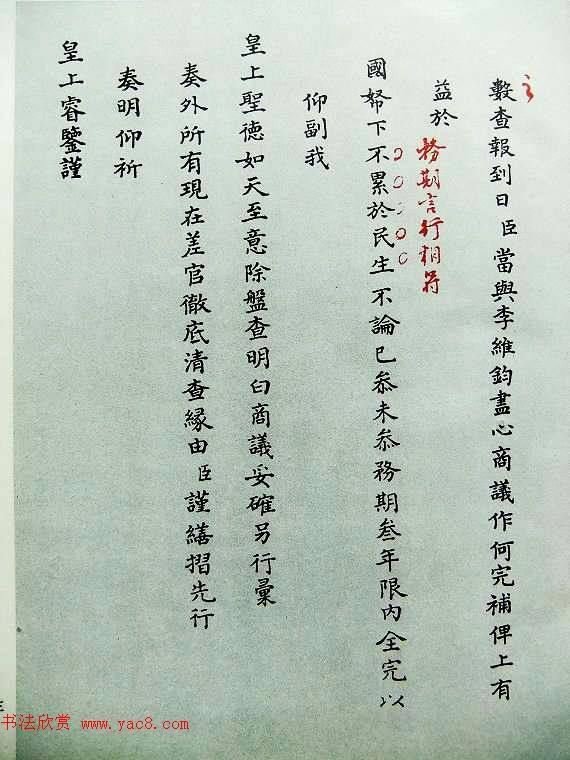 數查報到日臣當與李維鈞盡心商議作何完補俾上有
益於
務期言行相符
國帑下不累於民生不論已叅未叅務期叁年限內全完以
仰副我
皇上聖德如天至意除盤查明白商議妥確另行彙
奏外所有現在差官徹底清查緣由臣謹繕摺先行
奏明仰祈
皇上睿鑒謹
书法欣赏 www.yac8.com